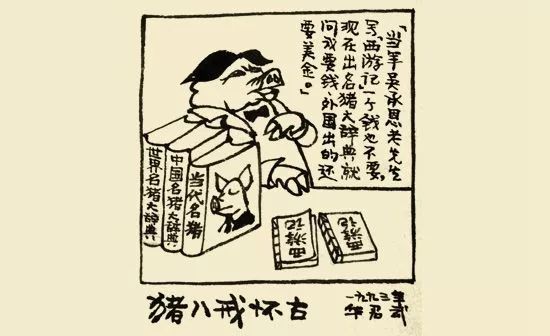 「当年吴承恩老先生
写“西游记”一个钱也不要,
现在出名猪大辞典就
问我要钱、外国出的还
要美金。」
当代名猪
中国名猪大辞典
世界名猪大辞典
西游记
西游记
猪八戒怀古
一九九三年
华君武